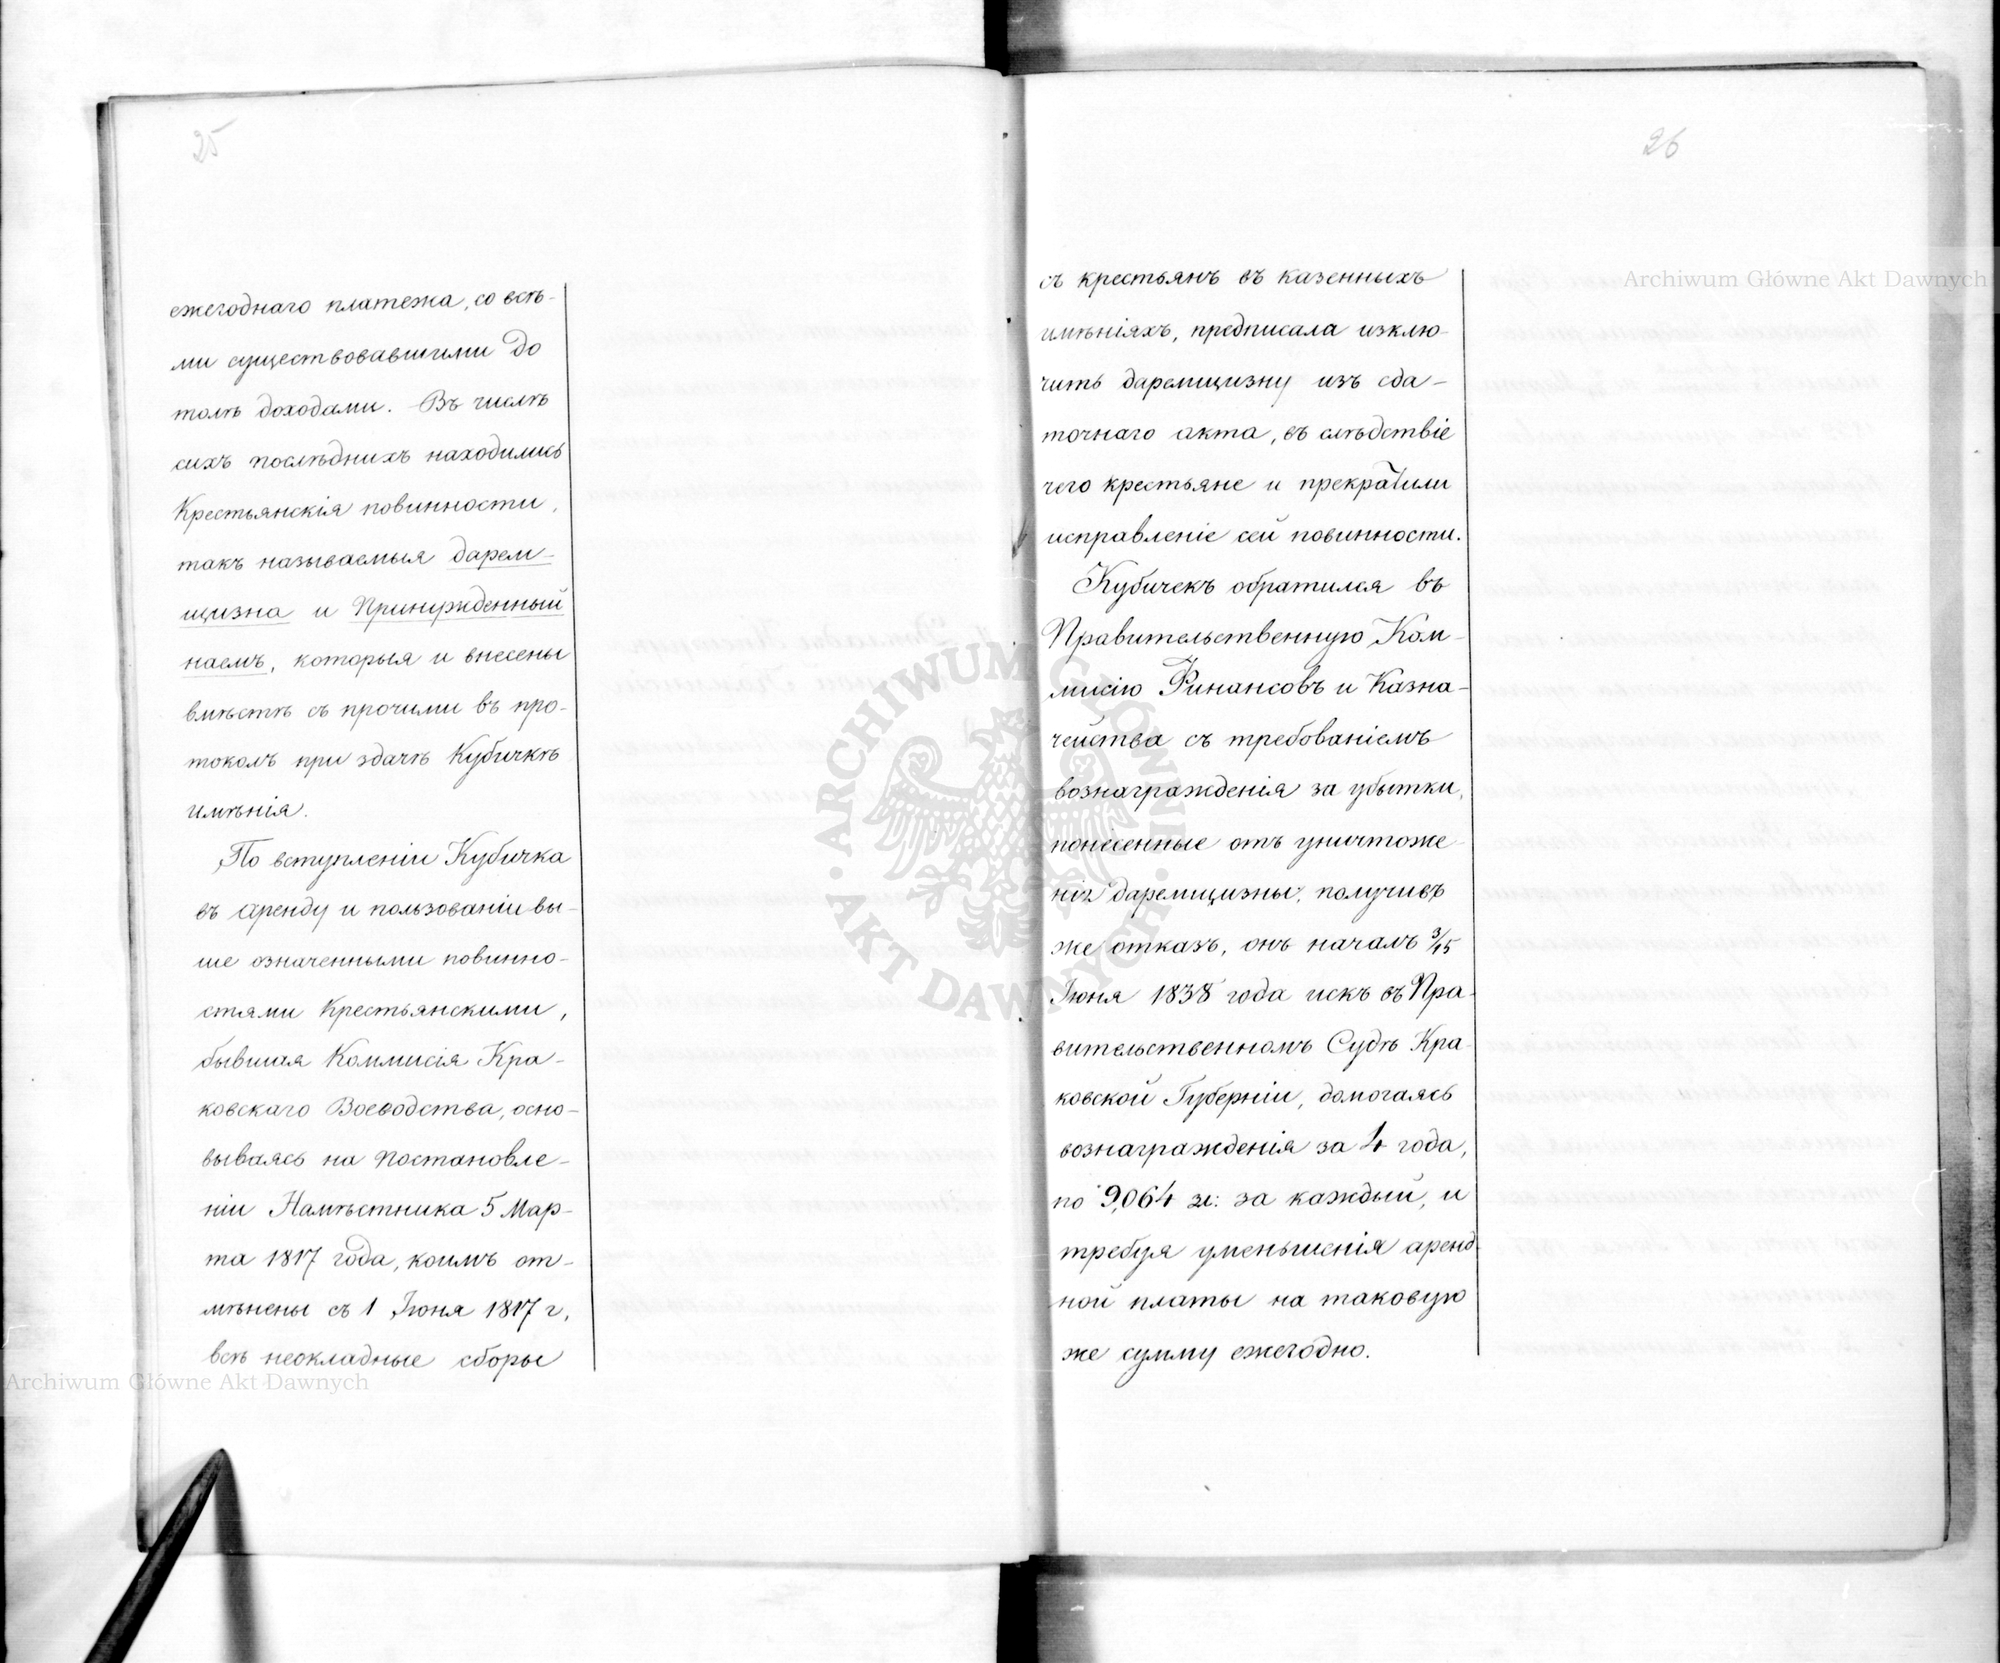 25
ежегоднаго платежа, со всѣ-
ми существовавшими до
толѣ доходами. Въ числѣ
сихъ послѣднихъ находились
Крестьянскія повинности,
такъ называемыя дарем-
щизна и Принужденный
наемъ, которыя и внесены
вмѣстѣ съ прочими въ про-
токолъ при здачѣ Кубичкѣ
имѣнія.
По вступленіи Кубичка
въ аренду и пользованіи вы-
ше означенными повинно-
стями Крестьянскими,
бывшая Коммисія Кра-
ковскаго Воеводства, осно-
вываясь на постановле-
ніи Намѣстника 5 Мар-
та 1817 года, коимъ от-
мѣнены съ 1 Іюня 1817 г.
всѣ неокладные сборы
26
съ крестьянъ въ казенныхъ
имѣніяхъ, предписала изклю-
чить даремщизну изъ сда-
точнаго акта, въ слѣдствіе
чего крестьяне и прекратили
исправленіе сей повинности.
Кубичекъ обратился въ
Правительственную Ком-
мисію Финансовъ и Казна-
чейства съ требованіемъ
вознагражденія за убытки,
понесенные отъ уничтоже-
нія даремщизны; получивъ
же отказъ, онъ началъ 3/15
Іюня 1838 года искъ въ Пра-
вительственномъ Судѣ Кра-
ковской Губерніи, домогаясь
вознагражденія за 4 года,
по 9,064 зл: за каждый, и
требуя уменьшенія аренд-
ной платы на таковую
же сумму ежегодно.
Archiwum Główne Akt Dawnych
Archiwum Główne Akt Dawnych
ARCHIWUM GŁÓWNE
AKT DAWNYCH